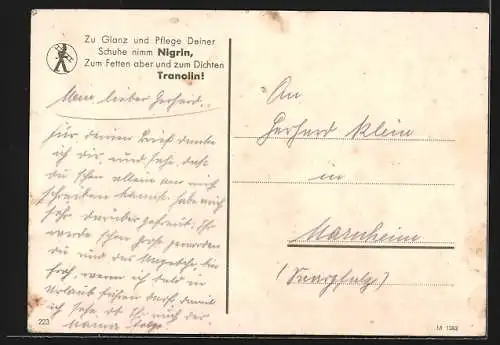 Zu Glanz und Pflege Deiner
Schuhe nimm Nigrin,
Zum Fetten aber und zum Dichten
Tranolin!
Mein lieber Gerhard!
Für deinen Brief danke
ich dir, und sehe, daß
du schon allein an mich
schreiben kannst. habe mich
sehr darüber gefreut. Ihr
werde schon groß geworden
du und das
wenn ich bald in
Urlaub führen darf, damit
ich sehe ob Ihr mich der
Mama folgt.
An
Gerhard Klein
in
Marnheim
(Saarpfalz)
223
M 1382